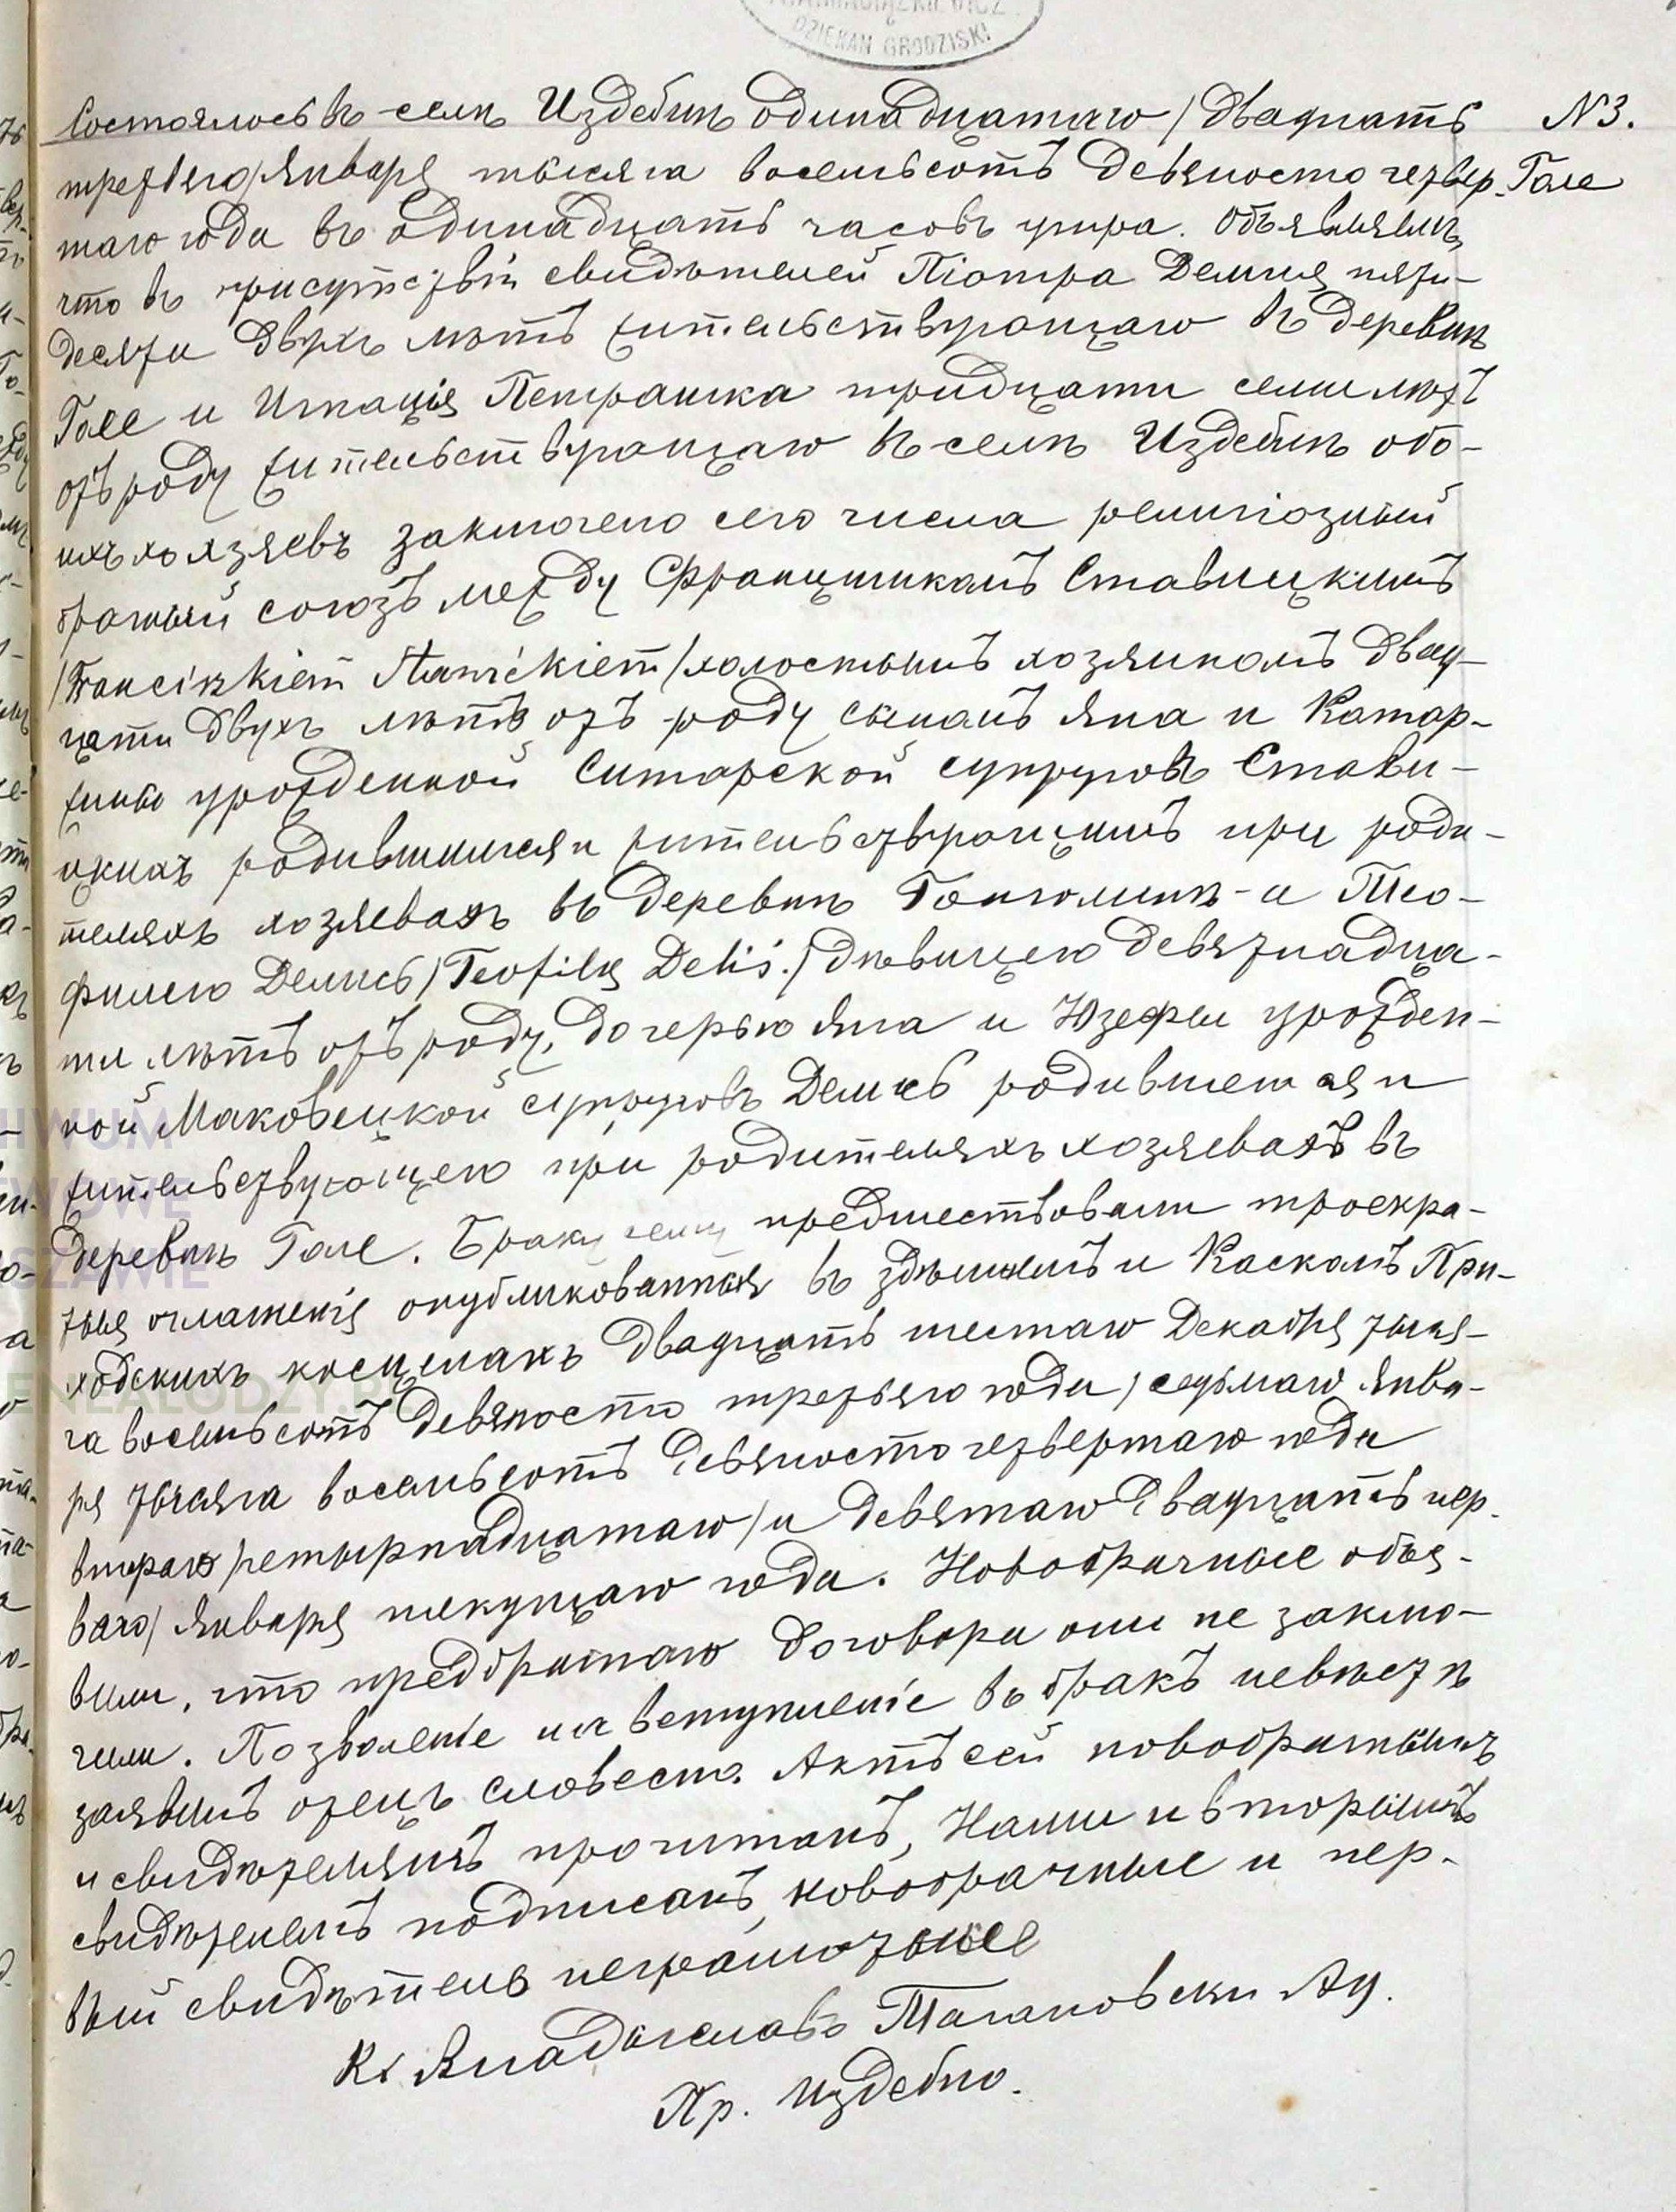 DZIEKAN GRODZISKI
Состоялось въ селѣ Издебнѣ одинадцатаго / двадцать
№ 3.
третьяго / Января тысяча восемьсотъ девяносто четвер-
Голе
таго года въ одинадцать часовъ утра. Объявляемъ,
что въ присутствіи свидѣтелей Піотра Делися пяти-
десяти двухъ лѣтъ жительствующаго въ деревнѣ
Голе и Игнація Петрашка тридцати семи лѣтъ
отъ роду жительствующаго въ селѣ Издебнѣ обо-
ихъ хозяевъ заключено сего числа религіозный
брачный союзъ между Францишкомъ Ставицкимъ
/Franciszkiem Stawickiem/ холостымъ хозяиномъ двад-
цати двухъ лѣтъ отъ роду сыномъ Яна и Катар-
жины урожденной Ситарской супруговъ Стави-
цкихъ родившимся и жительствующимъ при роди-
теляхъ хозяевахъ въ деревнѣ и Тео-
филею Делисъ /Teofilą Deliś./ дѣвицею девятнадца-
ти лѣтъ отъ роду, дочерью Яна и Юзефы урожден-
ной Маковецкой супруговъ Делисъ родившеюся и
жительствующею при родителяхъ хозяевахъ въ
деревнѣ Голе. Браку сему предшествовали троекра-
тныя оглашенія опубликованныя въ здѣшнемъ и Каскомъ При-
ходскихъ костелахъ двадцать шестаго Декабря тыся-
ча восемьсотъ девяносто третьяго года / седьмаго Янва-
ря тысяча восемьсотъ девяносто четвертаго года
втораго / четырнадцатаго / и девятаго / двадцать пер-
ваго / Января текущаго года. Новобрачные объя-
вили, что предбрачнаго договора они не заклю-
чили. Позволеніе на вступленіе въ бракъ невѣстѣ
заявилъ отецъ словесно. Актъ сей новобрачнымъ
и свидѣтелямъ прочитанъ, Нами и вторымъ
свидѣтелемъ подписанъ, новобрачные и пер-
вый свидѣтель неграмотные
Кс Ад.
Пр. Издебно.